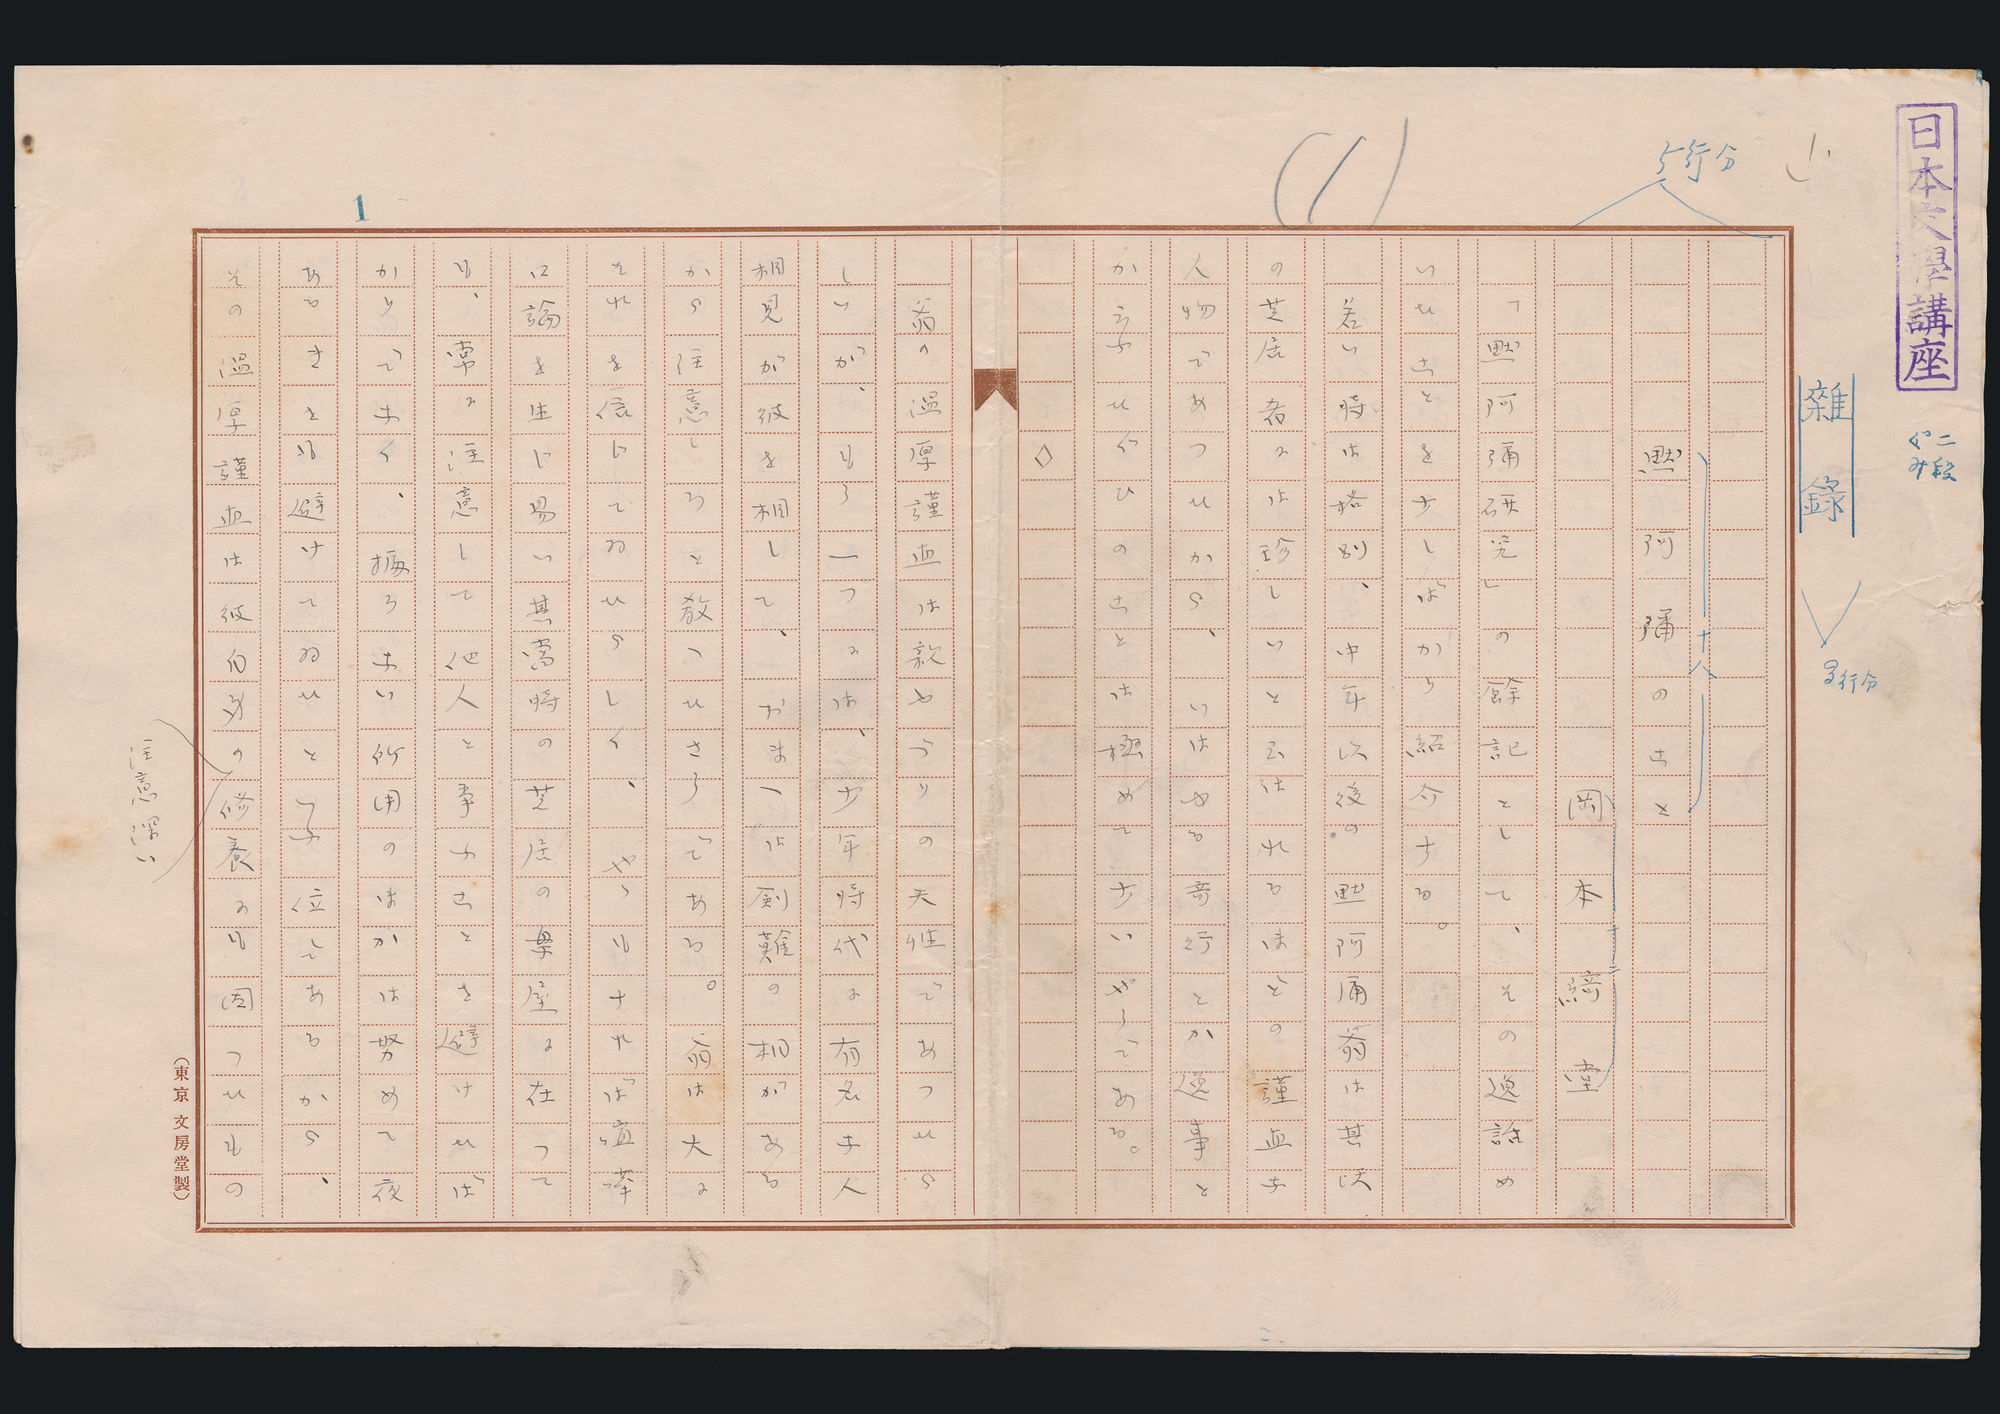 日本文學講座
二段
ぐみ
雜錄
3行分
5行分
(1)
十八
黙阿彌のこと
岡本綺堂
十二
「黙阿彌研究」の餘記として、その逸話め
いたことを少しばかり紹介する。
若い時は格別、中年以後の黙阿彌翁は其頃
の芝居者には珍しいと云はれるほどの謹直な
人物であつたから、いはゆる奇行とか逸事と
か云ふたぐひのことは極めて少いやうである。
◇
翁の溫厚謹直は親ゆづりの天性であつたら
しいが、もう一つには、少年時代に有名な人
相見が彼を相して、おまへは劍難の相がある
から注意しろと教へたさうである。翁は大に
それを信じてゐたらしく、やゝもすれば喧嘩
口論を生じ易い其當時の芝居の樂屋に在つて
も、常に注意して他人と爭ふことを避けたば
かりでなく、據ろない所用のほかは努めて夜
あるきをも避けてゐたと云ふ位であるから、
その溫厚謹直は彼自身の修養にも因つたもの
注意深い
1
(東京 文房堂製)